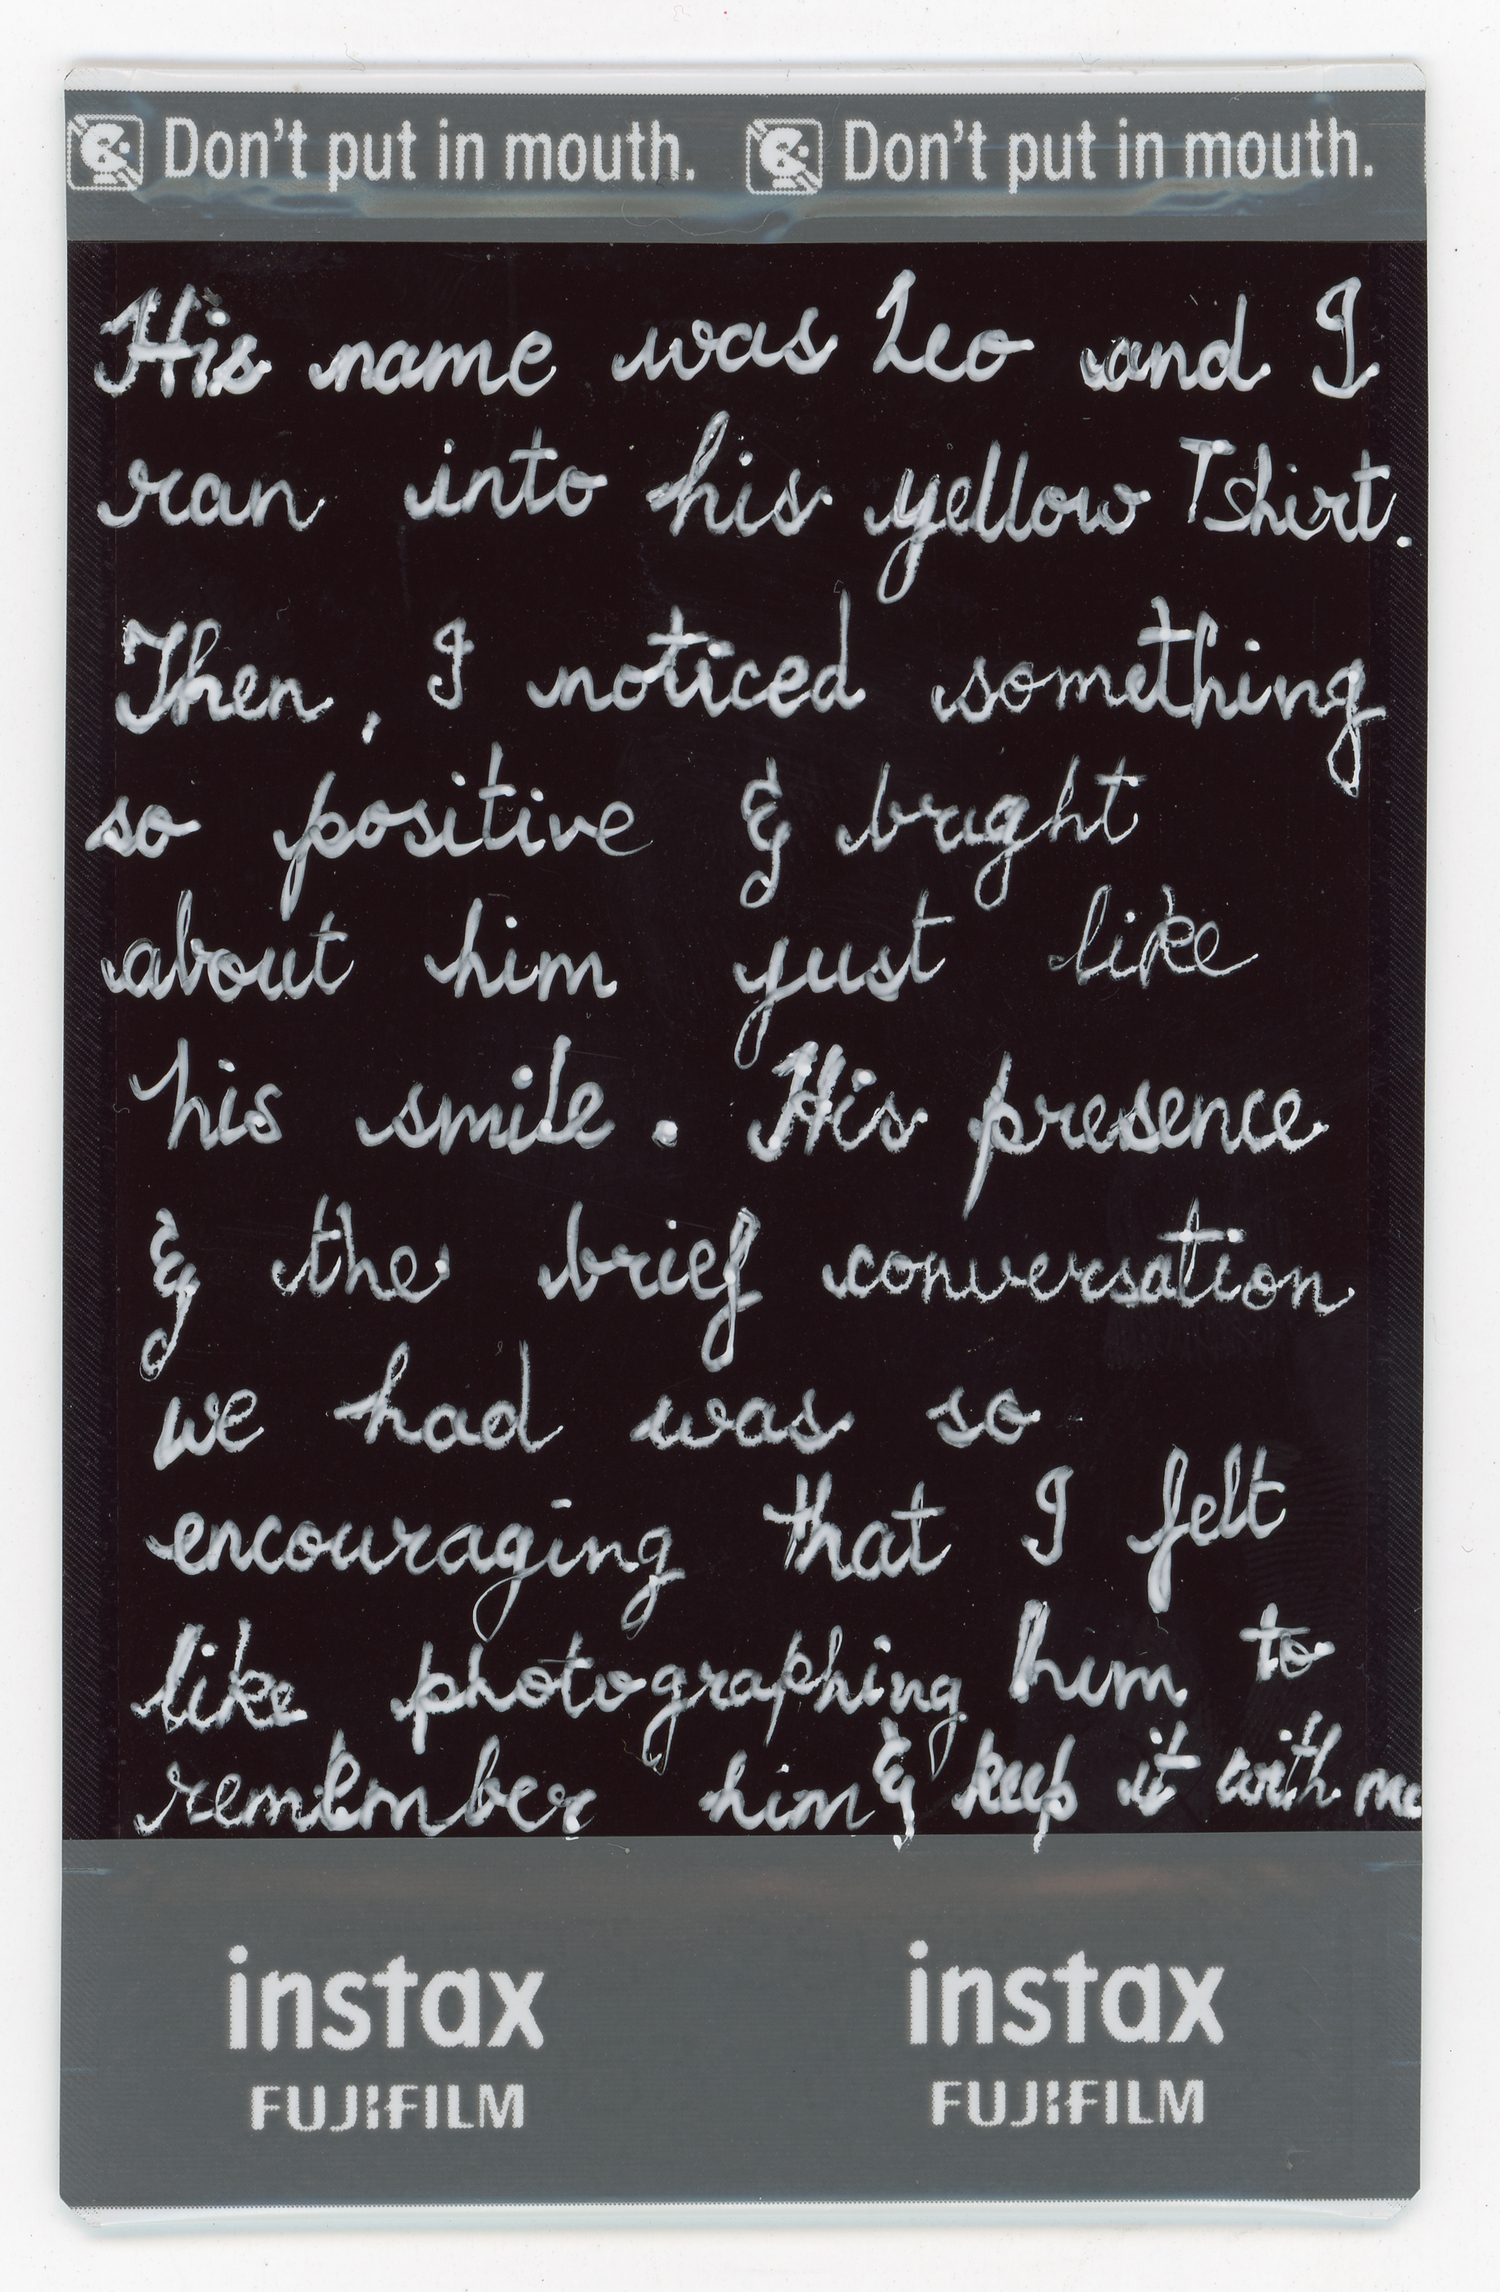 Don't put in mouth. Don't put in mouth.
His name was Leo and I
ran into his yellow Tshirt.
Then, I noticed something
so positive & bright
about him just like
his smile. His presence
& the brief conversation
we had was so
encouraging that I felt
like photographing him to
remember him & keep it with me
instax instax
FUJIFILM FUJIFILM